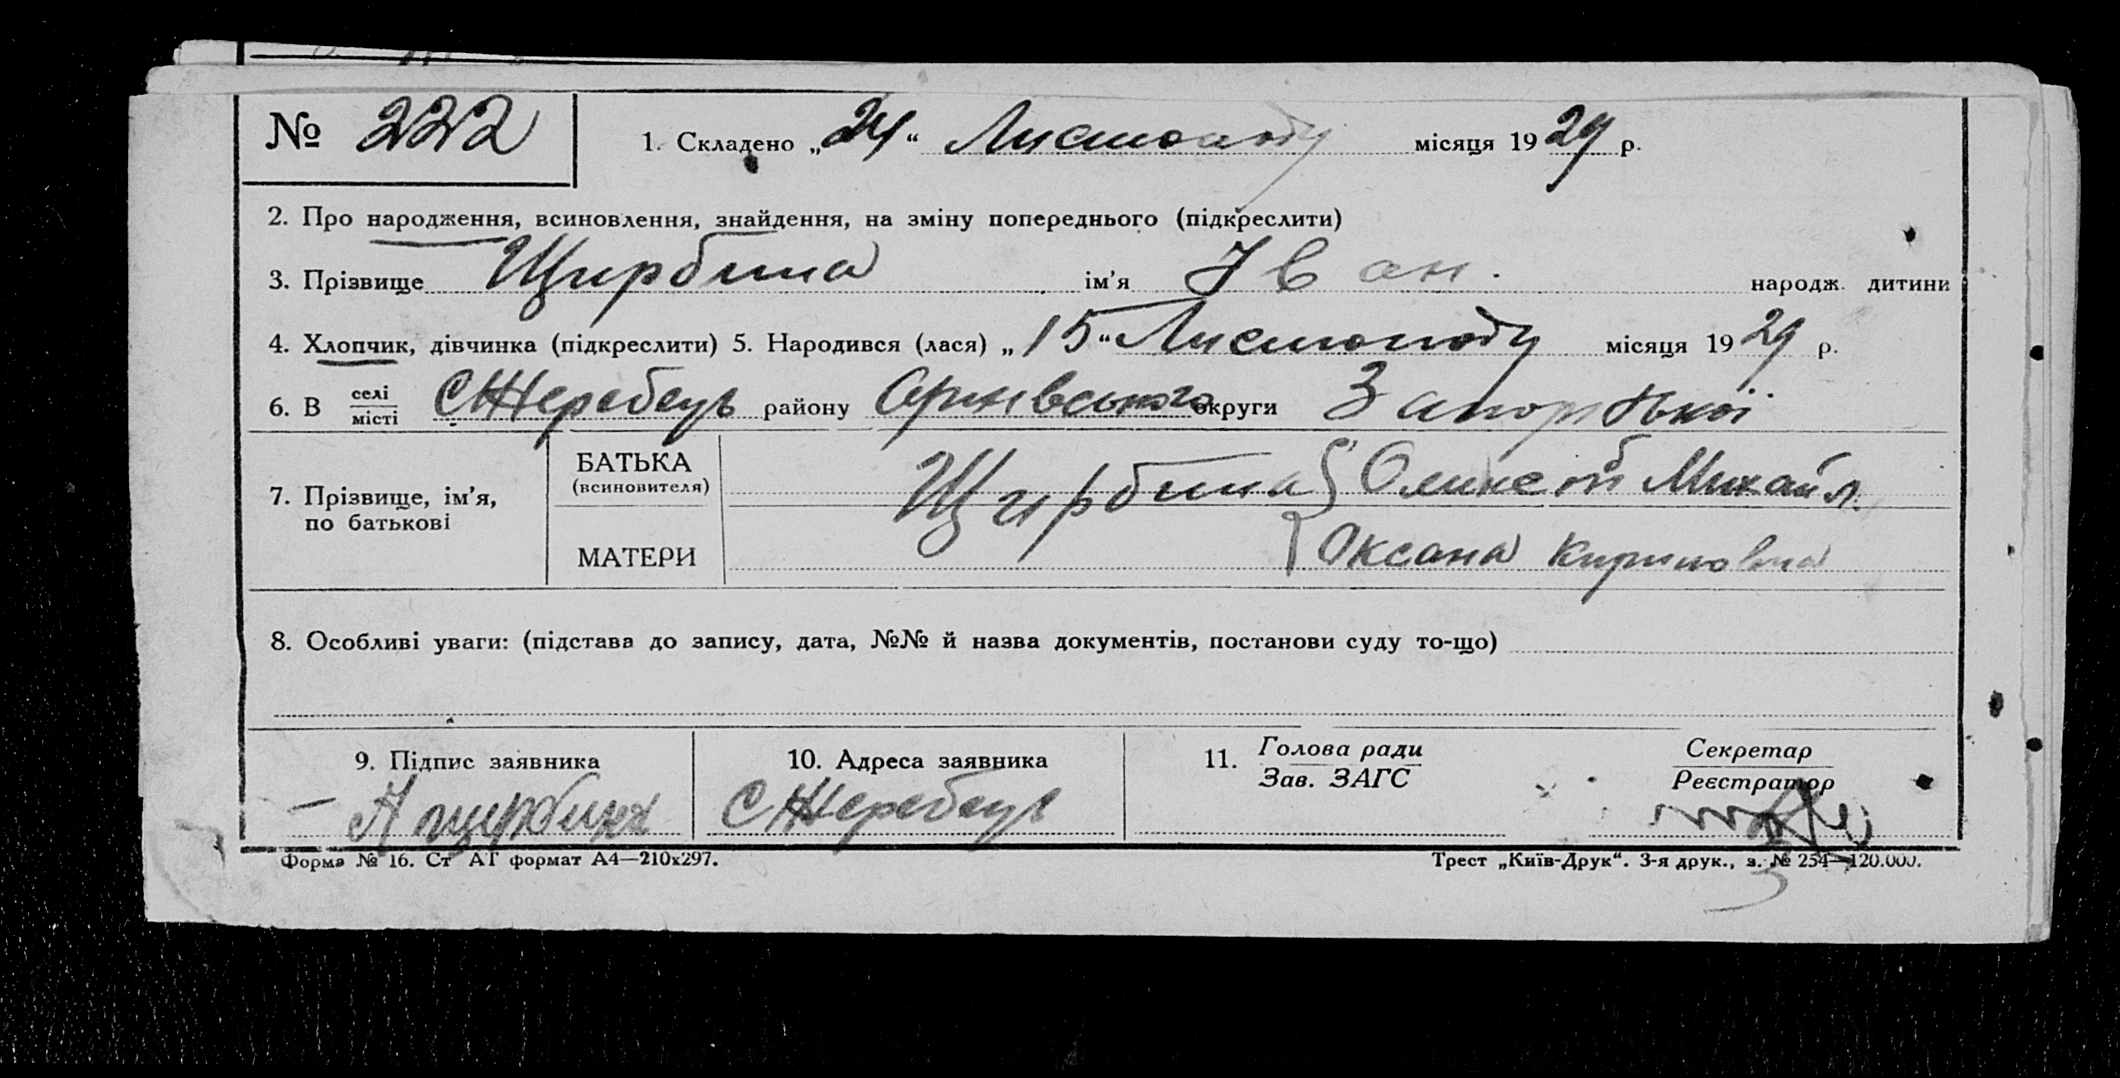 № 222
1. Складено „24“ Листопаду місяця 1929 р.
2. Про народження, всиновлення, знайдення, на зміну попереднього (підкреслити)
3. Прізвище Щирбина ім’я Іван. народж. дитини
4. Хлопчик, дівчинка (підкреслити) 5. Народився (лася) „15“ Листопаду місяця 1929 р.
6. В селі
місті С Жеребець району округи
7. Прізвище, ім’я,
по батькові
БАТЬКА
(всиновителя)
Щирбина Михайл.
МАТЕРИ
Оксана
8. Особливі уваги: (підстава до запису, дата, №№ й назва документів, постанови суду то-що)
9. Підпис заявника
10. Адреса заявника
С Жеребець
11. Голова ради
Зав. ЗАГС
Секретар
Реєстратор
Форма № 16. Ст АТ формат А4—210х297.
Трест „Київ-Друк“. 3-я друк., з. № 254—120.000.